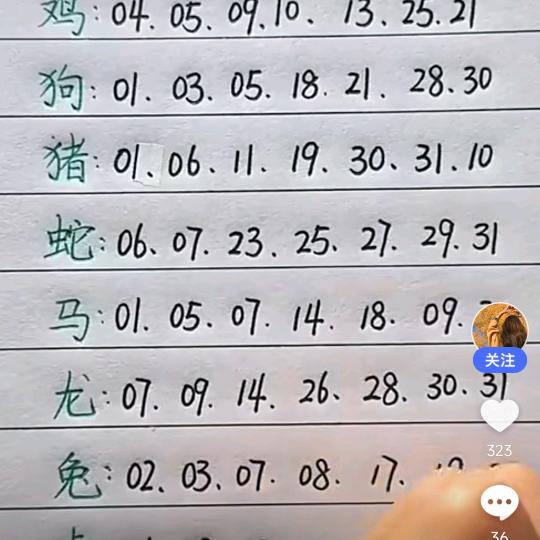 鸡: 04. 05. 09. 10. 13. 25. 21
狗: 01. 03. 05. 18. 21. 28. 30
猪: 01. 06. 11. 19. 30. 31. 10
蛇: 06. 07. 23. 25. 27. 29. 31
马: 01. 05. 07. 14. 18. 09.
关注
龙: 07. 09. 14. 26. 28. 30. 31
323
兔: 02. 03. 07. 08. 17.
36